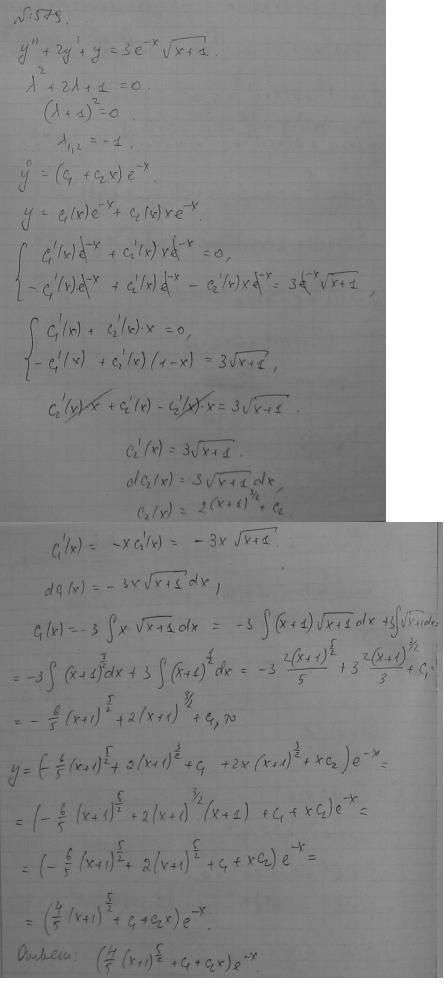 № 579.
y'' + 2y' + y = 3e^{-x} √(x+1).
λ² + 2λ + 1 = 0.
(λ+1)² = 0
λ_{1,2} = -1,
y⁰ = (c₁ + c₂x) e^{-x}.
y = c₁(x)e^{-x} + c₂(x)xe^{-x}.
{ c₁'(x)e^{-x} + c₂'(x)xe^{-x} = 0,
- c₁'(x)e^{-x} + c₂'(x)e^{-x} - c₂'(x)xe^{-x} = 3e^{-x}√(x+1),
{ c₁'(x) + c₂'(x)·x = 0,
- c₁'(x) + c₂'(x)(1-x) = 3√(x+1),
c₂'(x)·x + c₂'(x) - c₂'(x)·x = 3√(x+1).
c₂'(x) = 3√(x+1).
dc₂(x) = 3√(x+1) dx,
c₂(x) = 2(x+1)^{3/2} + c₂.
c₁'(x) = -xc₂'(x) = -3x√(x+1).
dc₁(x) = -3x√(x+1) dx,
c₁(x) = -3∫x·√(x+1) dx = -3∫(x+1)√(x+1) dx + 3∫√(x+1) dx =
= -3∫(x+1)^{3/2} dx + 3∫(x+1)^{1/2} dx = -3 2(x+1)^{5/2}/5 + 3 2(x+1)^{3/2}/3 + c₁ =
= -6/5 (x+1)^{5/2} + 2(x+1)^{3/2} + c₁,
y = (-6/5 (x+1)^{5/2} + 2(x+1)^{3/2} + c₁ + 2x(x+1)^{3/2} + xc₂) e^{-x} =
= (-6/5 (x+1)^{5/2} + 2(x+1)^{3/2} (x+1) + c₁ + xc₂) e^{-x} =
= (-6/5 (x+1)^{5/2} + 2(x+1)^{5/2} + c₁ + xc₂) e^{-x} =
= (4/5 (x+1)^{5/2} + c₁ + c₂x) e^{-x}.
Ответ: (4/5 (x+1)^{5/2} + c₁ + c₂x) e^{-x}.